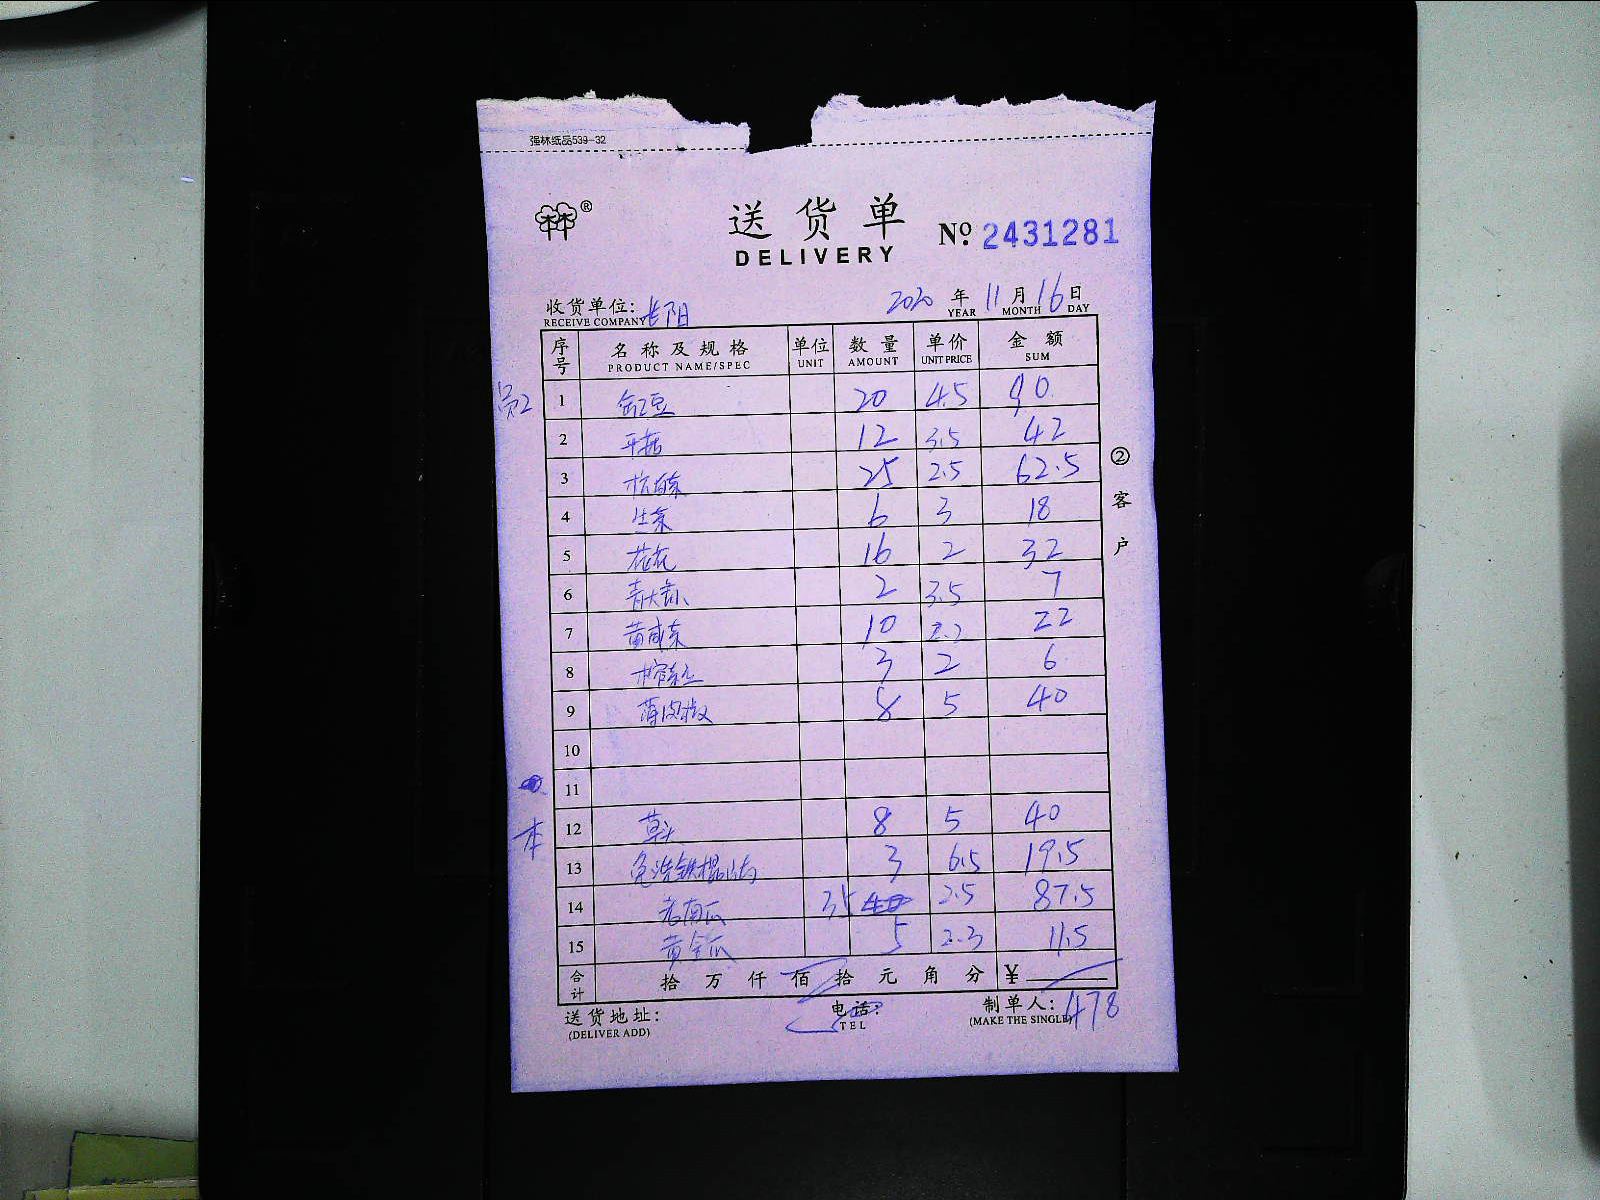 强林纸品539-32
®
送货单
DELIVERY
Nº. 2431281
收货单位: 长阳 2020 年 11 月 16 日
RECEIVE COMPANY YEAR MONTH DAY
序号 名称及规格 单位 数量 单价 金额
PRODUCT NAME/SPEC UNIT AMOUNT UNIT PRICE SUM
1 缸豆 20 4.5 90
2 平菇 12 3.5 42
3 杭白菜 25 2.5 62.5
4 生菜 6 3 18
5 花菜 16 2 32
6 青大椒 2 3.5 7
7 黄咸菜 10 2.2 22
8 榨菜丝 3 2 6
9 薄皮椒 8 5 40
10
11
本 12 草头 8 5 40
13 免洗铁棍山药 3 6.5 19.5
14 老南瓜 35 2.5 87.5
15 黄金瓜 5 2.3 11.5
合计 拾 万 仟 佰 拾 元 角 分 ¥
送货地址: 电话: 制单人: 478
(DELIVER ADD) TEL (MAKE THE SINGLE)
②客户